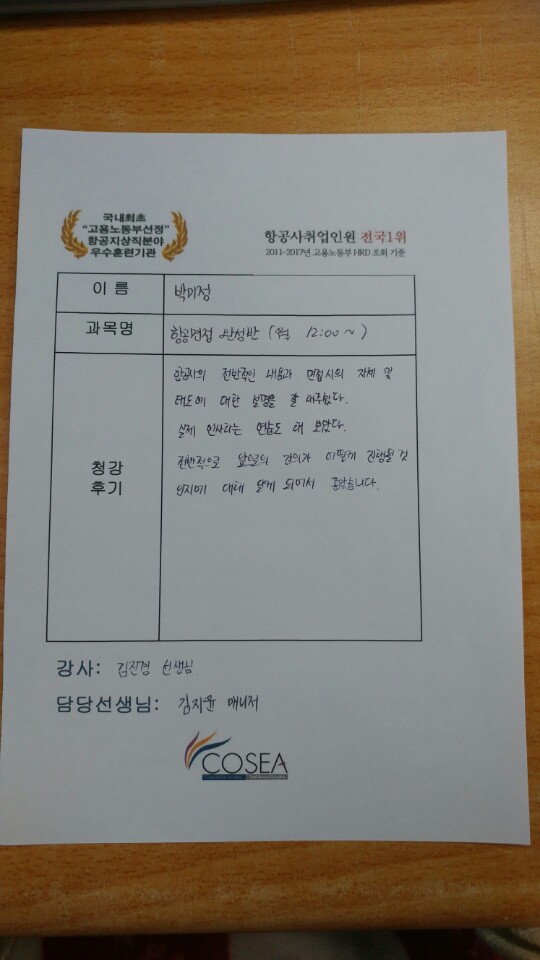 국내최초
"고용노동부선정"
항공지상직분야
우수훈련기관
항공사취업인원 전국1위
2011-2017년 고용노동부 HRD 조회 기준
이 름
박미정
과목명
항공면접 완성반 ( 12:00 ~ )
청강
후기
항공사의 전반적인 내용과 면접시의 자세 및
태도에 대한 설명을 잘 해주셨다.
실제 인사하는 연습도 해 보았다.
전반적으로 앞으로의 강의가 어떻게 진행될 것
인지에 대해 알게 되어서 좋았습니다.
강사: 김진경 선생님.
담당선생님: 김지윤 매니저
COSEA